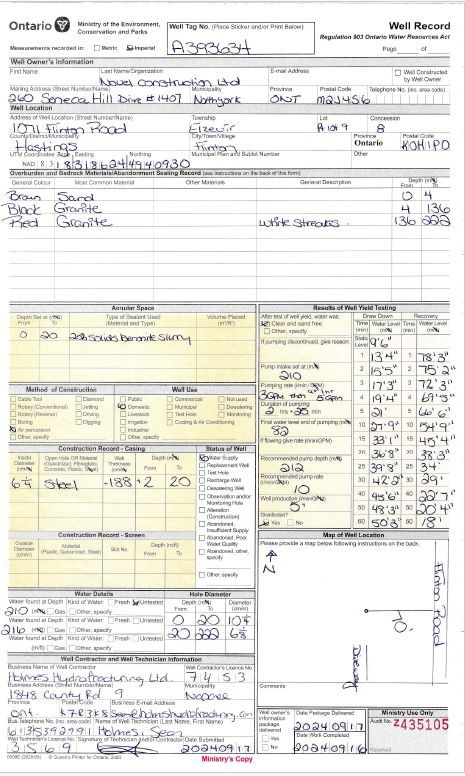 Ontario
Ministry of the Environment, Conservation and Parks
Well Tag No. (Place Sticker and/or Print Below)
Well Record
Regulation 903 Ontario Water Resources Act
Measurements recorded in: Metric Imperial
A393634
Page of
Well Owner's Information
First Name Last Name/Organization E-mail Address
Well Constructed by Well Owner
Novel Construction Ltd
Mailing Address (Street Number/Name) Municipality Province Postal Code Telephone No. (inc. area code)
260 Seneca Hill Drive #1407 Northyork ONT M2J4S6
Well Location
Address of Well Location (Street Number/Name) Township Lot Concession
1071 Flinton Road Elzevir 8
County/District/Municipality City/Town/Village Province Postal Code
Hastings Flinton Ontario K0H1P0
UTM Coordinates Zone Easting Northing Municipal Plan and Sublot Number Other
NAD 83 18 318624 4940930
Overburden and Bedrock Materials/Abandonment Sealing Record (see instructions on the back of this form)
General Colour Most Common Material Other Materials General Description Depth (m/ft) From To
Brown Sand 0 4
Black Granite 4 136
Red Granite White Streaks 136 222
Annular Space
Depth Set at (m/ft) From To Type of Sealant Used (Material and Type) Volume Placed (m³/ft³)
0 20 20% Solids Bentonite Slurry
Method of Construction Well Use
Cable Tool Diamond Public Commercial Not used
Rotary (Conventional) Jetting Domestic Municipal Dewatering
Rotary (Reverse) Driving Livestock Test Hole Monitoring
Boring Digging Irrigation Cooling & Air Conditioning
Air percussion Industrial
Other, specify Other, specify
Construction Record - Casing Status of Well
Inside Diameter (cm/in) Open Hole OR Material (Galvanized, Fibreglass, Concrete, Plastic, Steel) Wall Thickness (cm/in) Depth (m/ft) From To
6¼ Steel .188 +2 20
Water Supply
Replacement Well
Test Hole
Recharge Well
Dewatering Well
Observation and/or Monitoring Hole
Alteration (Construction)
Abandoned, Insufficient Supply
Abandoned, Poor Water Quality
Abandoned, other, specify
Other, specify
Construction Record - Screen
Outside Diameter (cm/in) Material (Plastic, Galvanized, Steel) Slot No. Depth (m/ft) From To
Water Details Hole Diameter
Water found at Depth Kind of Water: Fresh Untested Depth (m/ft) From To Diameter (cm/in)
210 (m/ft) Gas Other, specify 0 20
Water found at Depth Kind of Water: Fresh Untested
216 (m/ft) Gas Other, specify 20 222
Water found at Depth Kind of Water: Fresh Untested
(m/ft) Gas Other, specify
Well Contractor and Well Technician Information
Business Name of Well Contractor Well Contractor's Licence No.
Holmes Hydrofracturing Ltd. 7453
Business Address (Street Number/Name) Municipality
1848 County Rd 9 Napanee
Province Postal Code Business E-mail Address
Ont K7R3K8
Bus. Telephone No. (inc. area code) Name of Well Technician (Last Name, First Name)
6135392991 Holmes, Sean
Well Technician's Licence No. Signature of Technician and/or Contractor Date Submitted
3569 20240917
0506E (2020/06) © Queen's Printer for Ontario, 2020
Ministry's Copy
Results of Well Yield Testing
After test of well yield, water was: Draw Down Recovery
Clear and sand free
Other, specify
Time (min) Water Level (m/ft) Time (min) Water Level (m/ft)
If pumping discontinued, give reason:
Static Level 9'6"
1 13'4" 1 78'3"
Pump intake set at (m/ft)
210
2 15'5" 2 75'2"
3 17'3" 3 72'3"
Pumping rate (l/min / GPM)
3GPM then 5GPM
4 19'4" 4 69'5"
Duration of pumping
2 hrs + 25 min
5 21' 5 66'6"
Final water level end of pumping (m/ft)
82
10 27'9" 10 54'9"
If flowing give rate (l/min/GPM)
15 33'1" 15 45'4"
20 36'8" 20 38'3"
Recommended pump depth (m/ft)
212
25 39'8" 25 34'
Recommended pump rate (l/min/GPM)
10
30 42'2" 30 29'
Well production (l/min/GPM)
5
40 45'6" 40 22'7"
50 48'3" 50 20'4"
Disinfected?
Yes No
60 50'3" 60 18'
Map of Well Location
Please provide a map below following instructions on the back.
N
Flinton Road
Driveway
Comments:
Well owner's information package delivered Yes No
Date Package Delivered
20240917
Date Work Completed
20240916
Ministry Use Only
Audit No. Z435105
Received